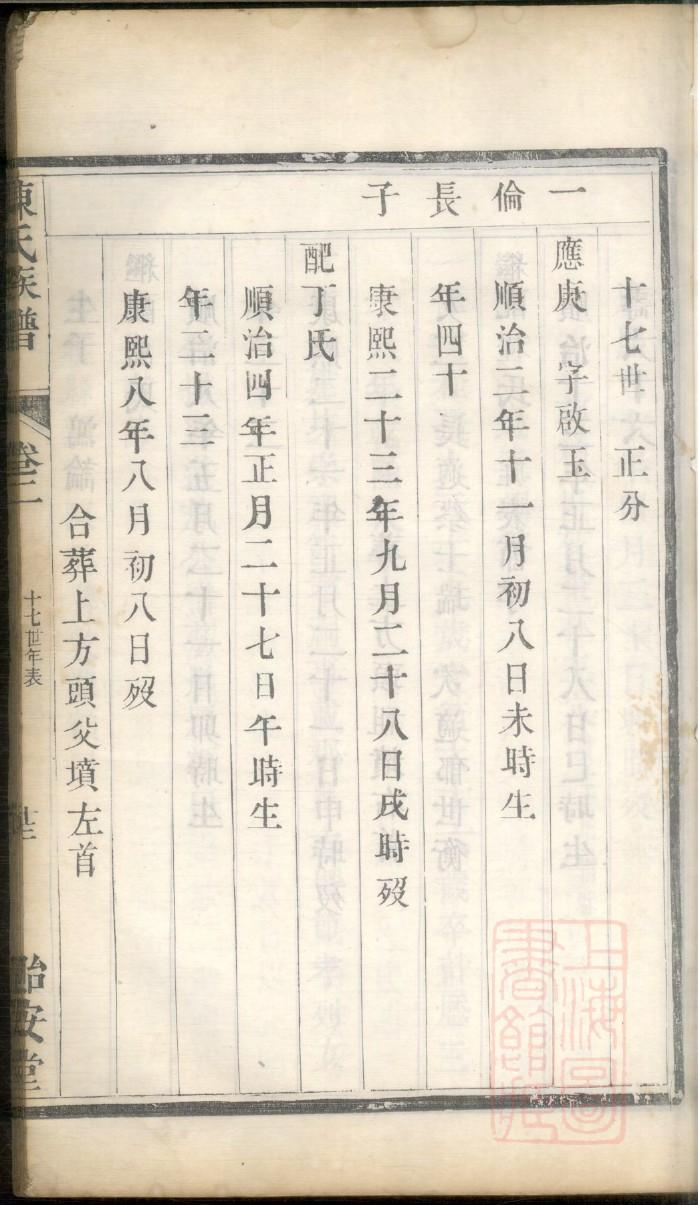 一倫長子
十七世大正分
應庚字啟玉
順治二年十一月初八日未時生
年四十
康熙二十三年九月二十八日戌時歿
配丁氏
順治四年正月二十七日午時生
年二十三
康熙八年八月初八日歿
合葬上方頭父墳左首
陳氏族譜
卷二
十七世年表
廿二
怡安堂
上海圖
書館藏